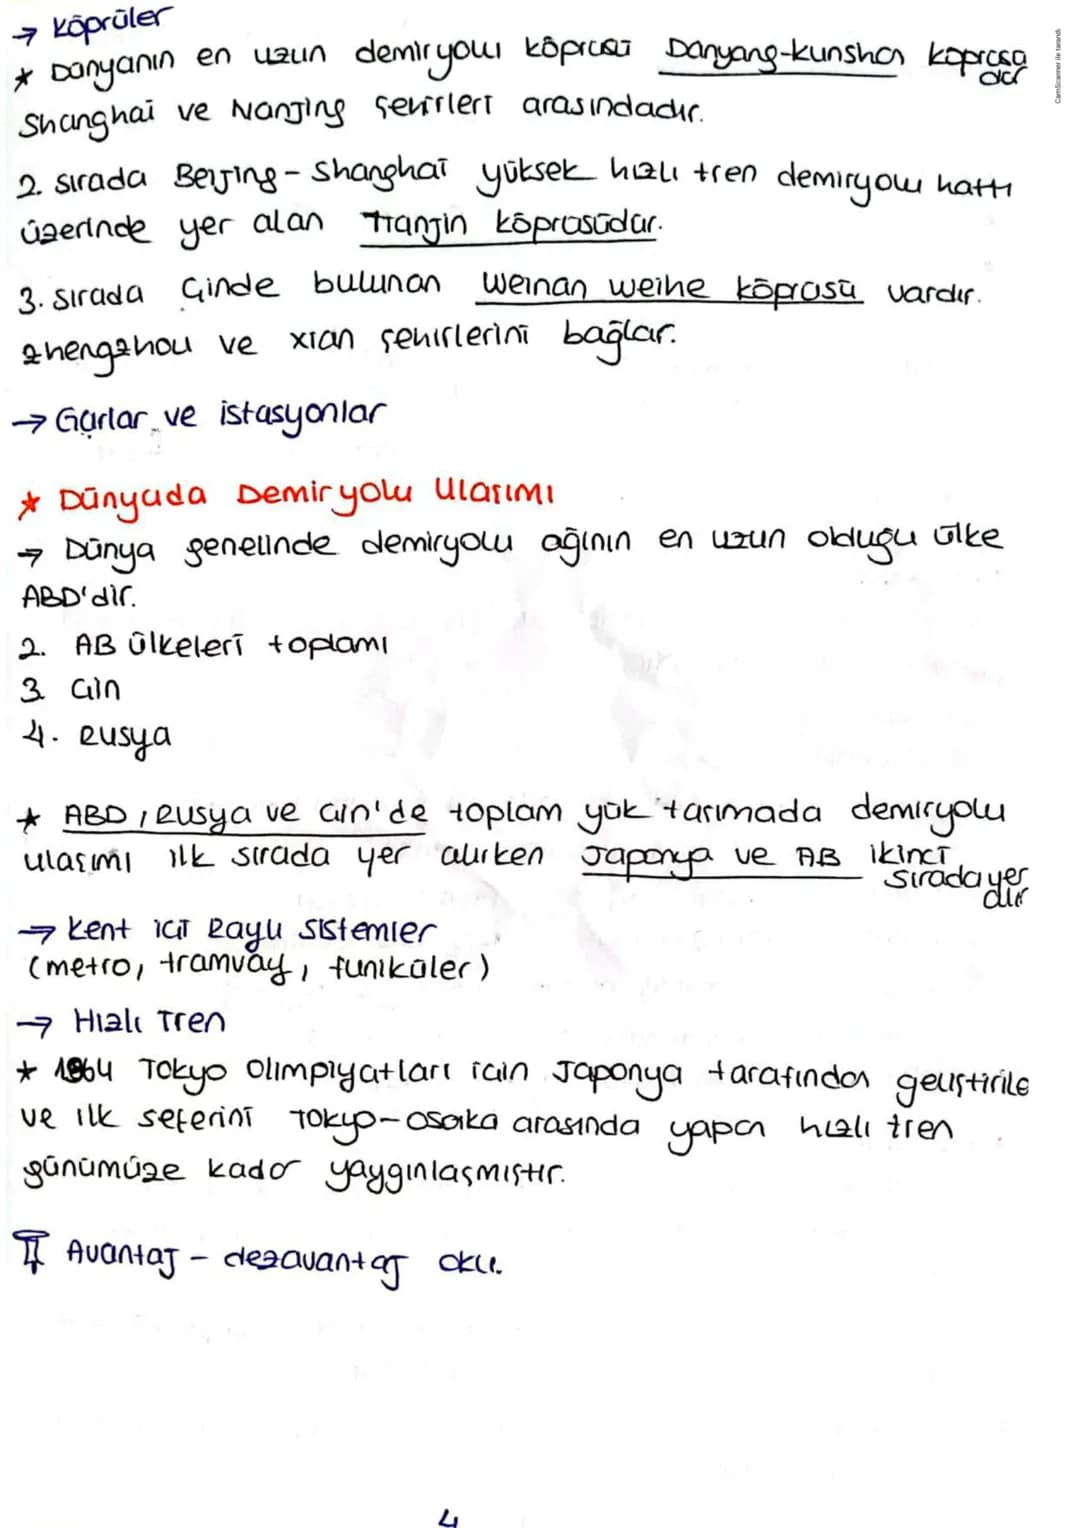 → Köprüler
* Dünyanın en uzun demiryolu köprüsü Danyang-kunshan köprüsü
dür
Shanghai ve Nanjing şehirleri arasındadır.
2. sırada Beijing - Shanghai yüksek hızlı tren demiryolu hattı
üzerinde yer alan Tianjin köprüsüdür.
3. sırada Çinde bulunan Weinan weihe köprüsü vardır.
zhengzhou ve xian şehirlerini bağlar.
→ Garlar ve istasyonlar
* Dünyada Demiryolu Ulaşımı
→ Dünya genelinde demiryolu ağının en uzun olduğu ülke
ABD'dir.
2. AB ülkeleri toplamı
3 Çin
4. Rusya
* ABD, Rusya ve Çin'de toplam yük taşımada demiryolu
ulaşımı ilk sırada yer alırken Japonya ve AB ikinci
sırada yer
dir
→ Kent içi Raylı Sistemler
(metro, tramvay, füniküler)
→ Hızlı Tren
* 1964 Tokyo Olimpiyatları için Japonya tarafından geliştirile
ve ilk seferini Tokyo-Osaka arasında yapan hızlı tren
günümüze kadar yaygınlaşmıştır.
Avantaj - dezavantaj oku.
4
CamScanner ile tarandı